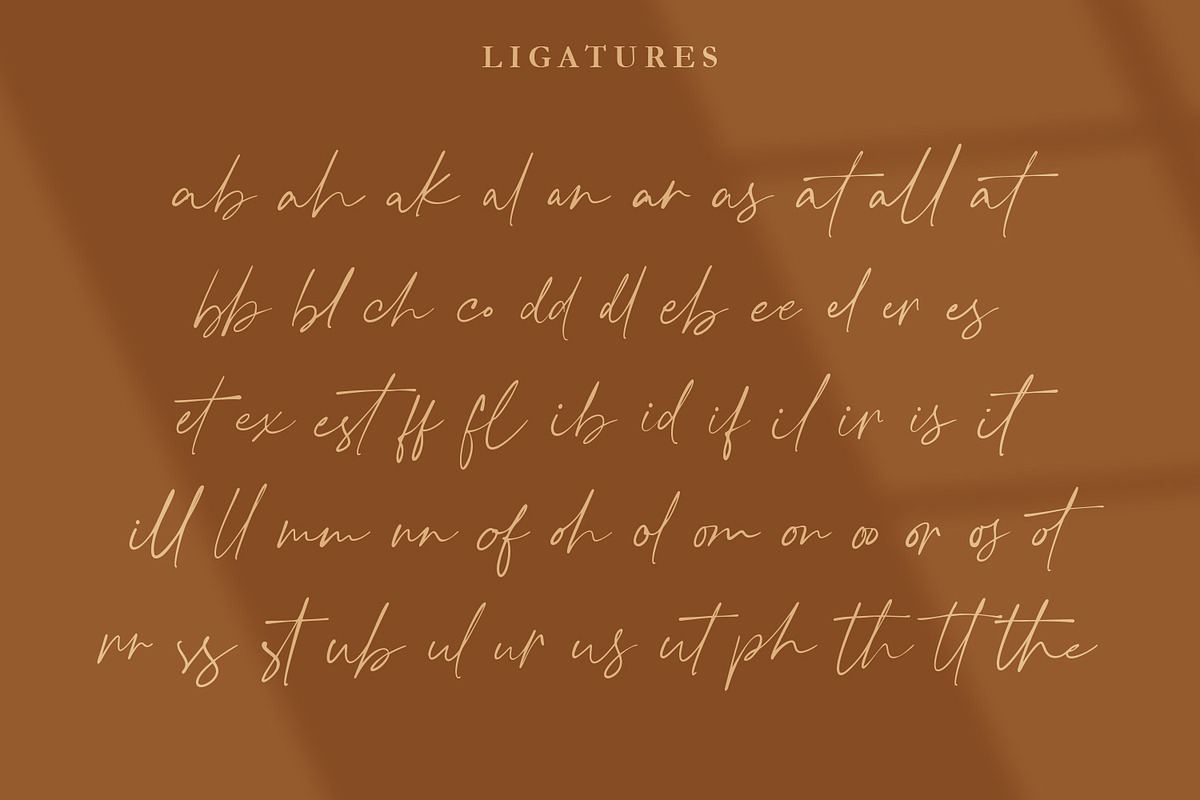 LIGATURES
ab ah ak al an ar as at all at
bb bl ch co dd dl eb ee el er es
et ex est ff fl ib id if il ir is it
ill ll mm nn of oh ol om on oo or os ot
rr ss st ub ul ur us ut ph th tt the